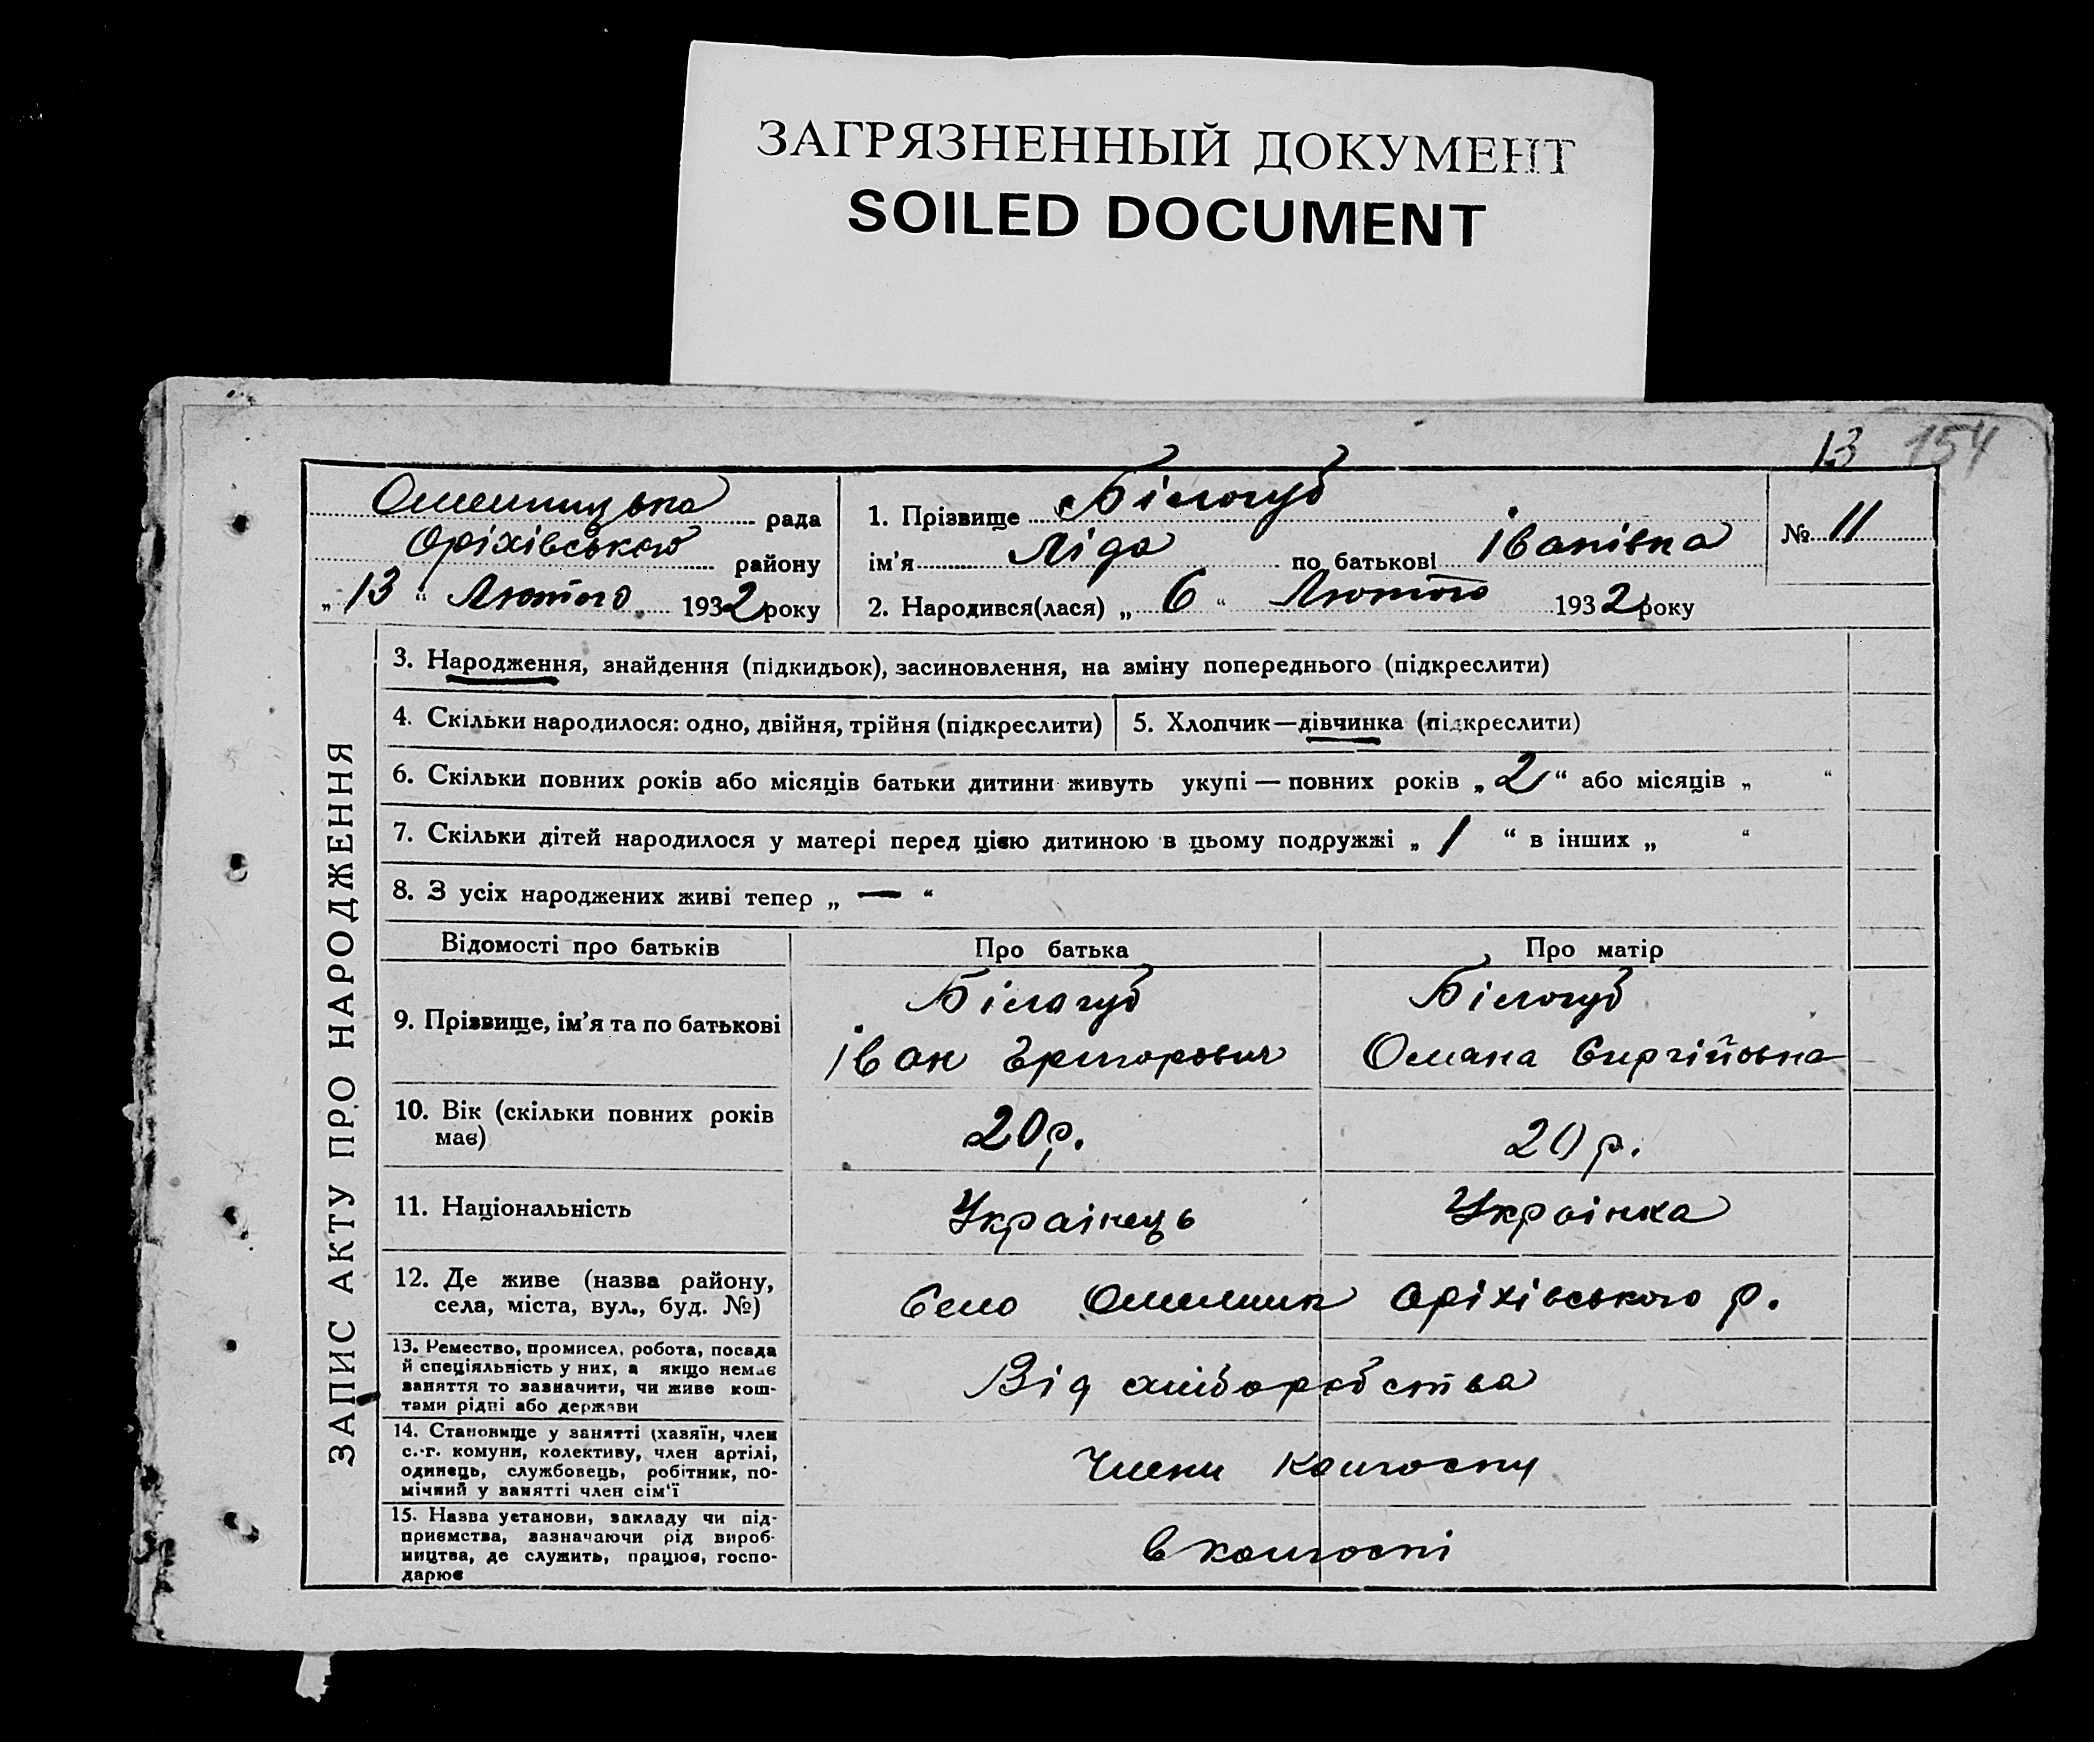 ЗАГРЯЗНЕННЫЙ ДОКУМЕНТ
SOILED DOCUMENT
13 154
Омельницька рада
Оріхівського району
„13“ Лютого 1932 року
1. Прізвище Білогуб
ім'я Ліда по батькові Іванівна
2. Народився(лася) „6“ Лютого 1932 року
№ 11
ЗАПИС АКТУ ПРО НАРОДЖЕННЯ
3. Народження, знайдення (підкидьок), засиновлення, на зміну попереднього (підкреслити)
4. Скільки народилося: одно, двійня, трійня (підкреслити)
5. Хлопчик—дівчинка (підкреслити)
6. Скільки повних років або місяців батьки дитини живуть укупі — повних років „2“ або місяців „ “
7. Скільки дітей народилося у матері перед цією дитиною в цьому подружжі „1“ в інших „ “
8. З усіх народжених живі тепер „—“
Відомості про батьків
Про батька
Про матір
9. Прізвище, ім'я та по батькові
Білогуб
Іван
Білогуб
10. Вік (скільки повних років
має)
20 р.
20 р.
11. Національність
Українець
Українка
12. Де живе (назва району,
села, міста, вул., буд. №)
Село Омельник Оріхівського р.
13. Ремество, промисел, робота, посада
й спеціяльність у них, а якщо немає
заняття то зазначити, чи живе кош-
тами рідні або держави
Від хліборобства
14. Становище у занятті (хазяїн, член
с.-г. комуни, колективу, член артілі,
одинець, службовець, робітник, по-
мічний у занятті член сім'ї
Члени колгоспу
15. Назва установи, закладу чи під-
приємства, зазначаючи рід вироб-
ництва, де служить, працює, госпо-
дарює
в колгоспі